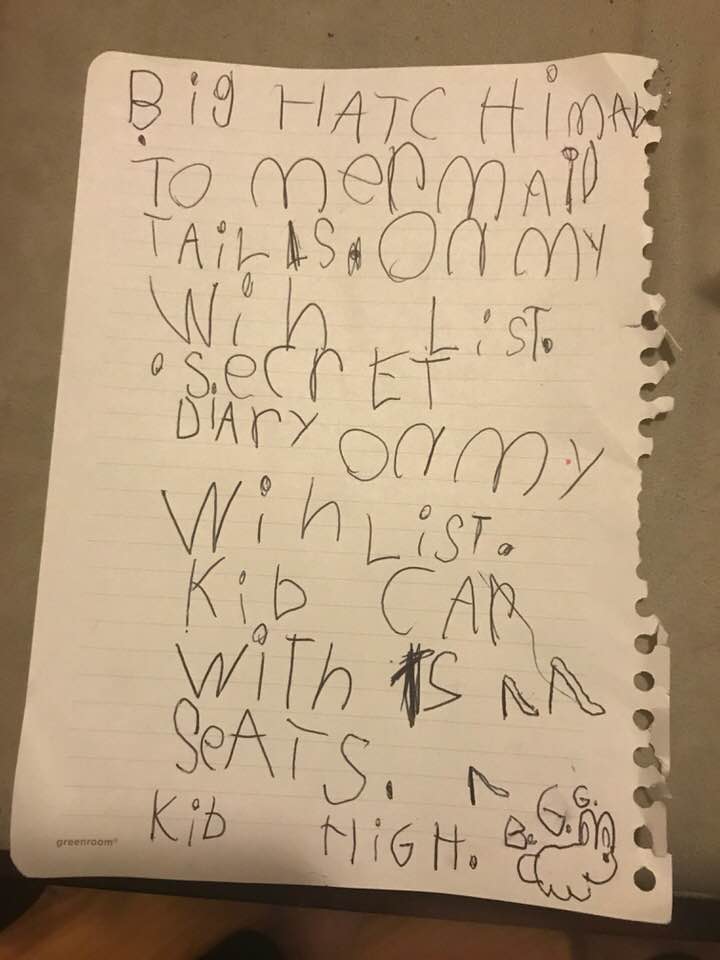 Big HATCHimAL
TO mermAID
TAiLS. On mY
Wih LiST.
. SecrET
DiAry On mY
Wih LiST.
Kib CAR
WiTh S
SeATS.
Kib HiGH. B.G.G.
greenroom®